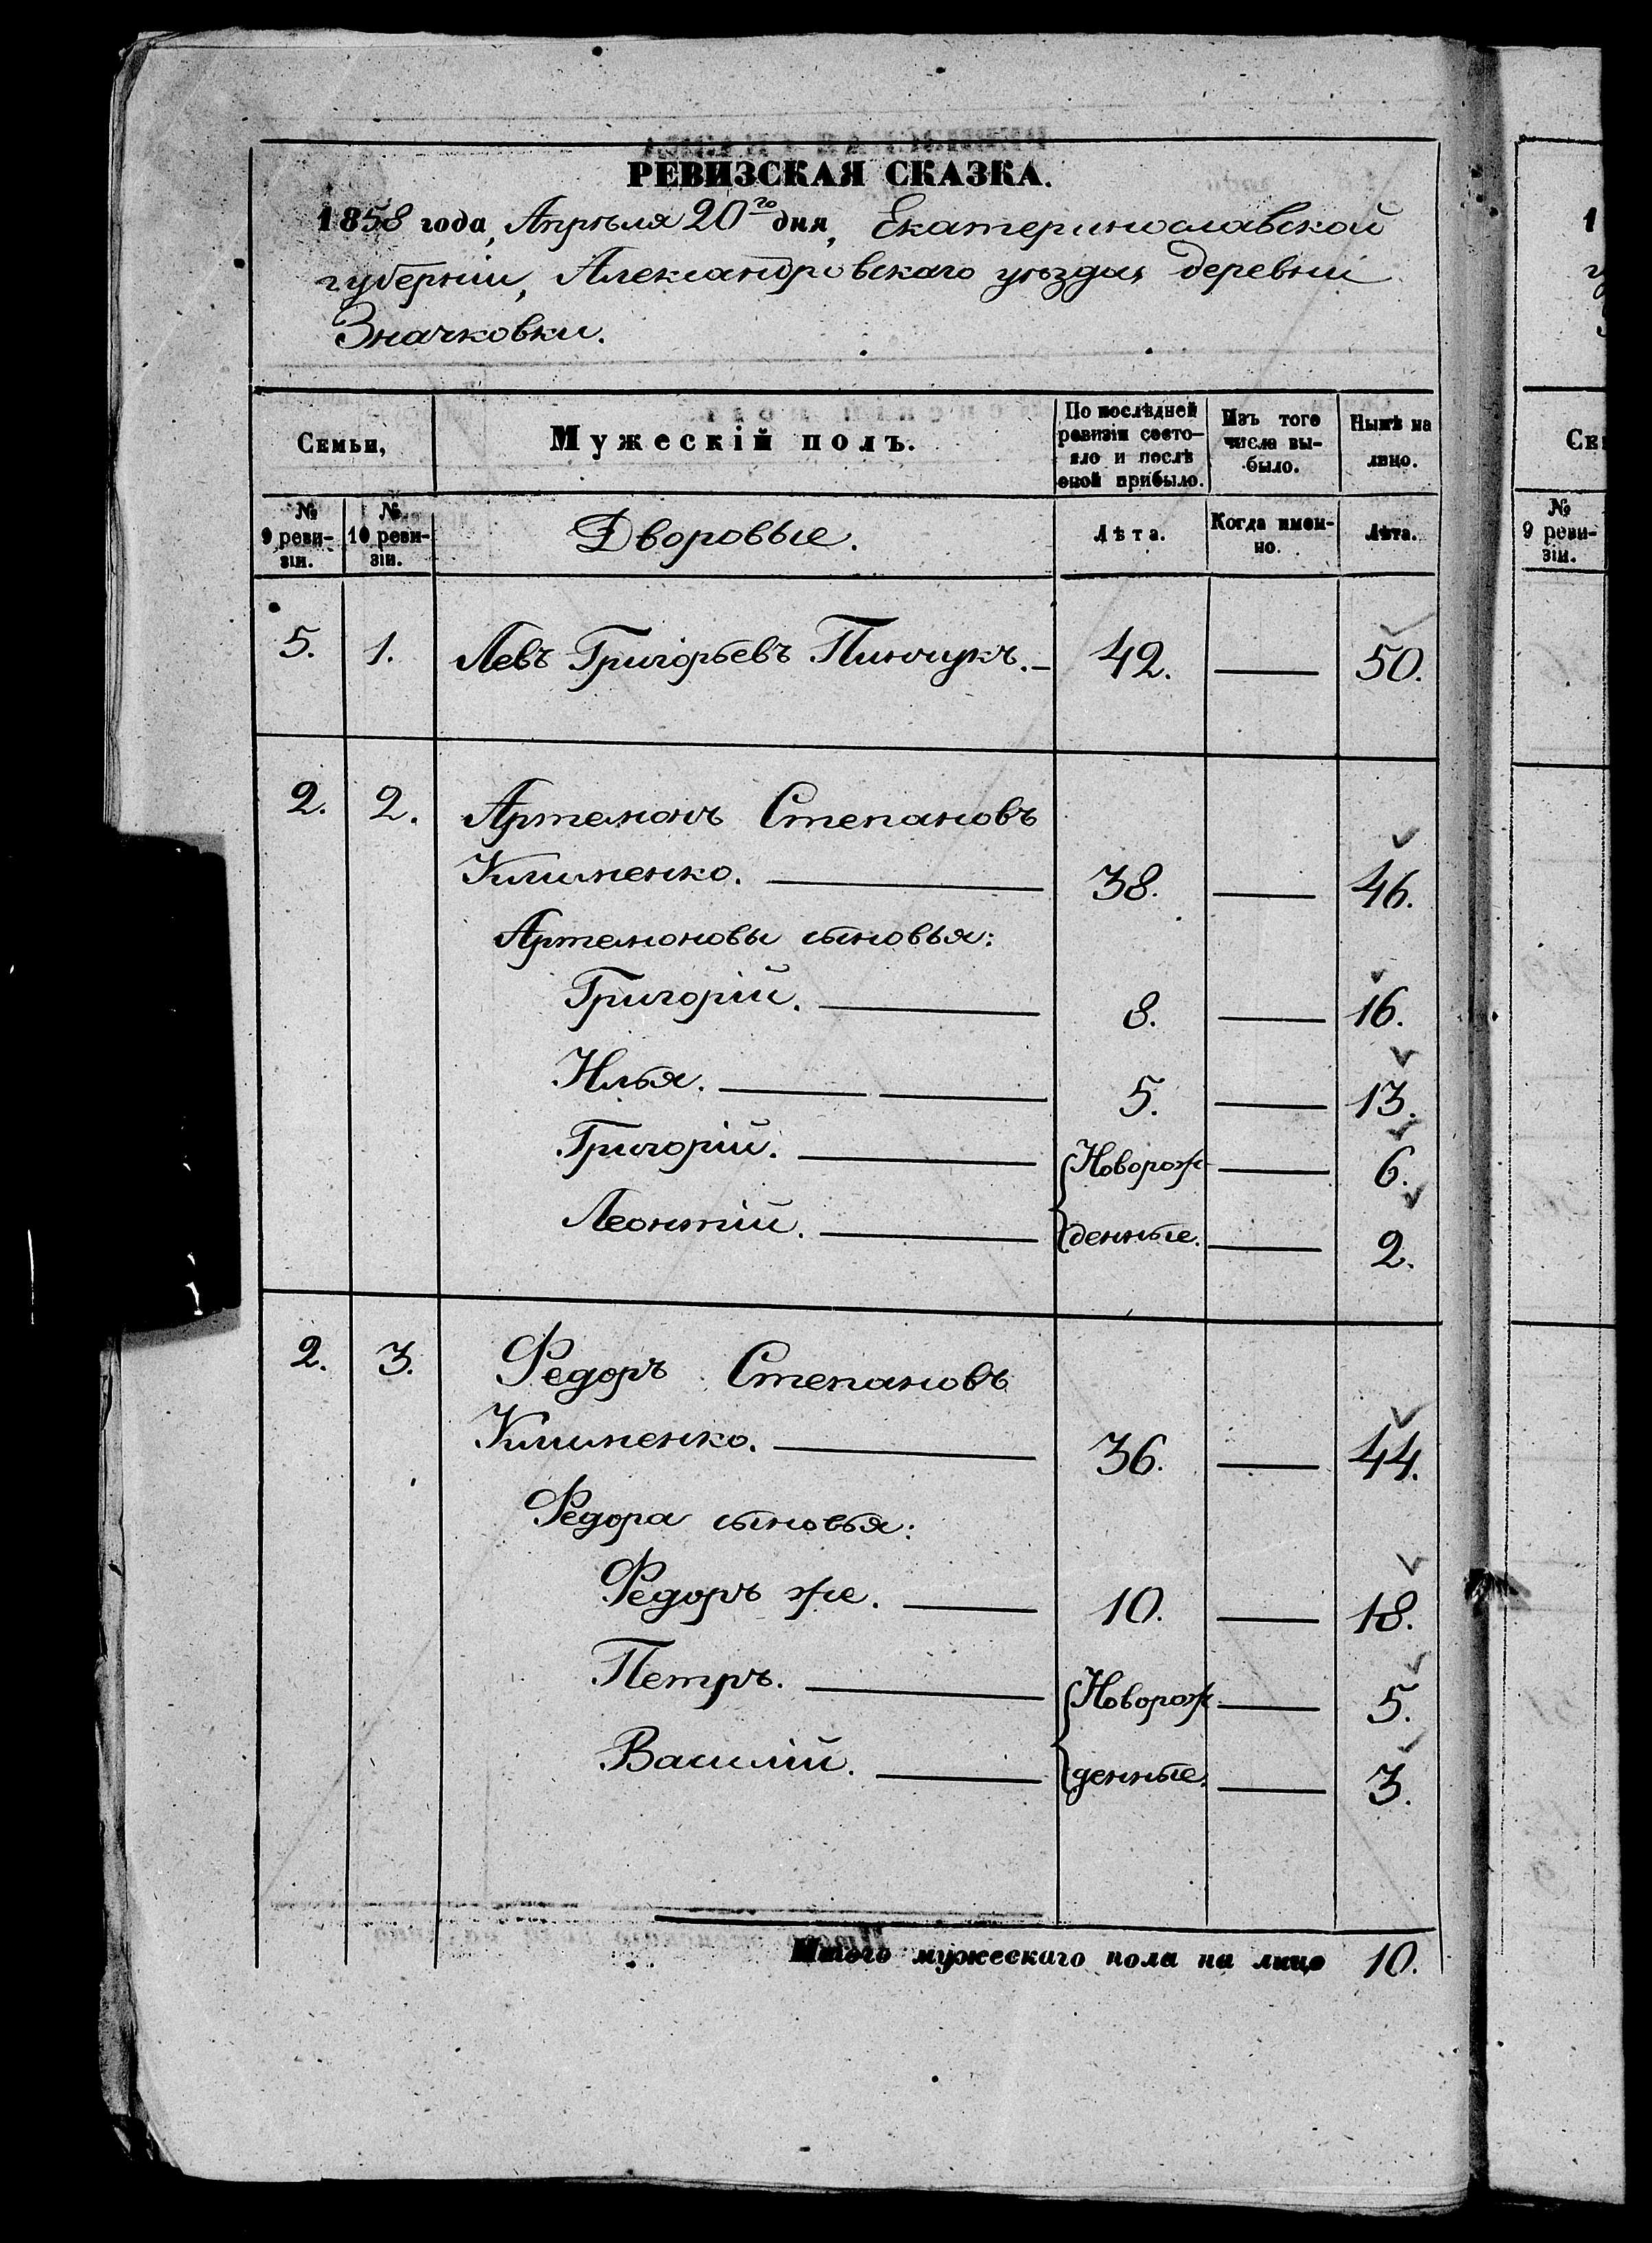 РЕВИЗСКАЯ СКАЗКА.
1858 года, Апрѣля 20го дня, Екатеринославской
губерніи, Александровскаго уѣзда, деревни
Значковки.
Семьи, Мужескій полъ. По послѣдней ревизіи состояло и послѣ оной прибыло. Изъ того числа выбыло. Нынѣ на лицо.
№ 9 ревизіи. № 10 ревизіи. Дворовые. Лѣта. Когда именно. Лѣта.
5. 1. Левъ Григорьевъ Пинчукъ. 42. — 50.
2. 2. Артемонъ Степановъ
Клименко. 38. — 46.
Артемоновы сыновья:
Григорій. 8. — 16.
Илья. 5. — 13.
Григорій. {Новорож — 6.
Леонтій. денные. — 2.
2. 3. Федоръ Степановъ
Клименко. 36. — 44.
Федора сыновья:
Федоръ же. 10. — 18.
Петръ. {Новорож — 5.
Василій. денные. — 3.
Итого мужескаго пола на лицо 10.
№
9 реви-
зіи.